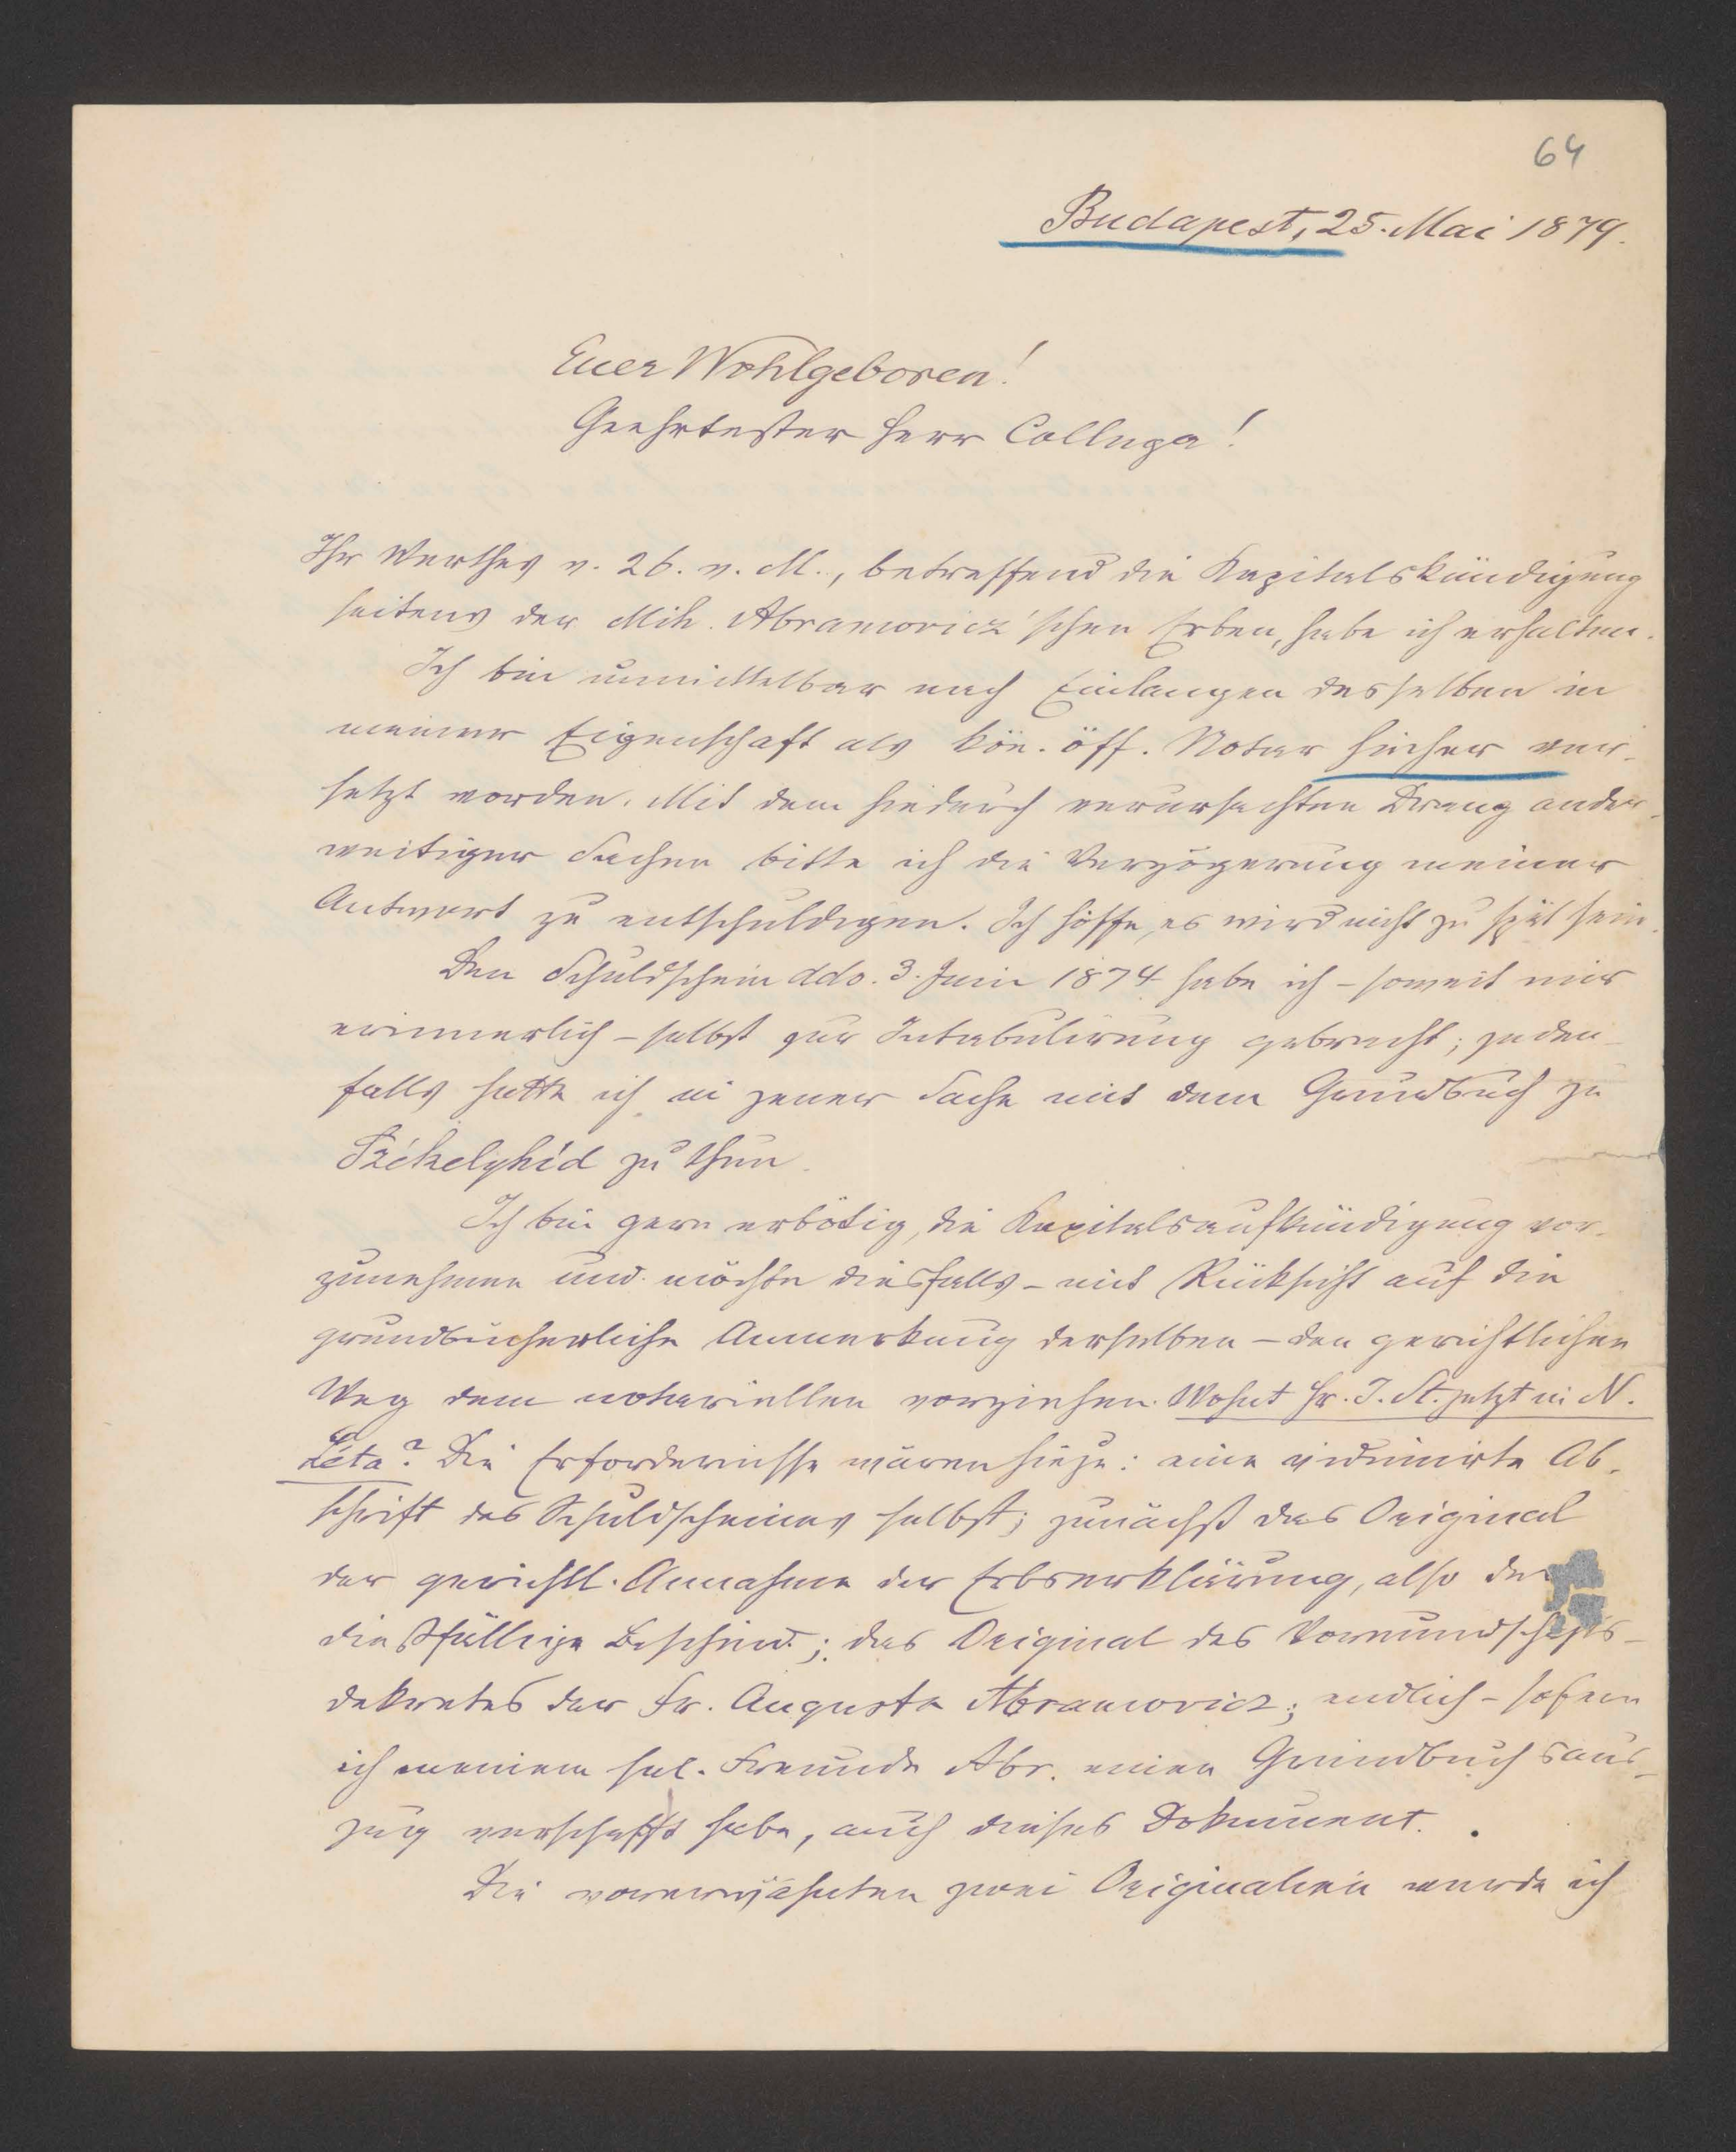 64
Budapest, 25. Mai 1879.
Euer Wohlgeboren!
Geehrtester Herr Collega!
Ihr Werthes v. 26. v. M., betreffend die Kapitalskündigung
seitens der Mih. Abramovicz'schen Erben, habe ich erhalten.
Ich bin unmittelbar nach Einlangen desselben in
meiner Eigenschaft als kön. öff. Notar hieher ver-
setzt worden. Mit dem hiedurch verursachten Drang ander-
weitiger Sachen bitte ich die Verzögerung meiner
Antwort zu entschuldigen. Ich hoffe, es wird nicht zu spät sein.
Den Schuldschein ddo. 3. Juni 1874 habe ich – soweit mir
erinnerlich – selbst zur Intabulirung gebracht; jeden-
falls hatte ich in jener Sache mit dem Grundbuch zu
Székelyhíd zu thun.
Ich bin gern erbötig, die Kapitalsaufkündigung vor-
zunehmen und möchte diesfalls – mit Rücksicht auf die
grundbücherliche Anmerkung derselben – den gerichtlichen
Weg dem notariellen vorziehen. Wohnt Hr. J. St. jetzt in N.
Léta? Die Erfordernisse wären hiezu: eine vidimirte Ab-
schrift des Schuldscheines selbst; zunächst das Original
der gerichtl. Annahme der Erbserklärung, also der
diesfällige Bescheid; das Original des Vormundschafts-
dekretes der Fr. Auguste Abramovicz; endlich – sofern
ich meinem sel. Freunde Abr. einen Grundbuchsaus-
zug verschafft habe, auch dieses Dokument.
Die vorerwähnten zwei Originalien werde ich